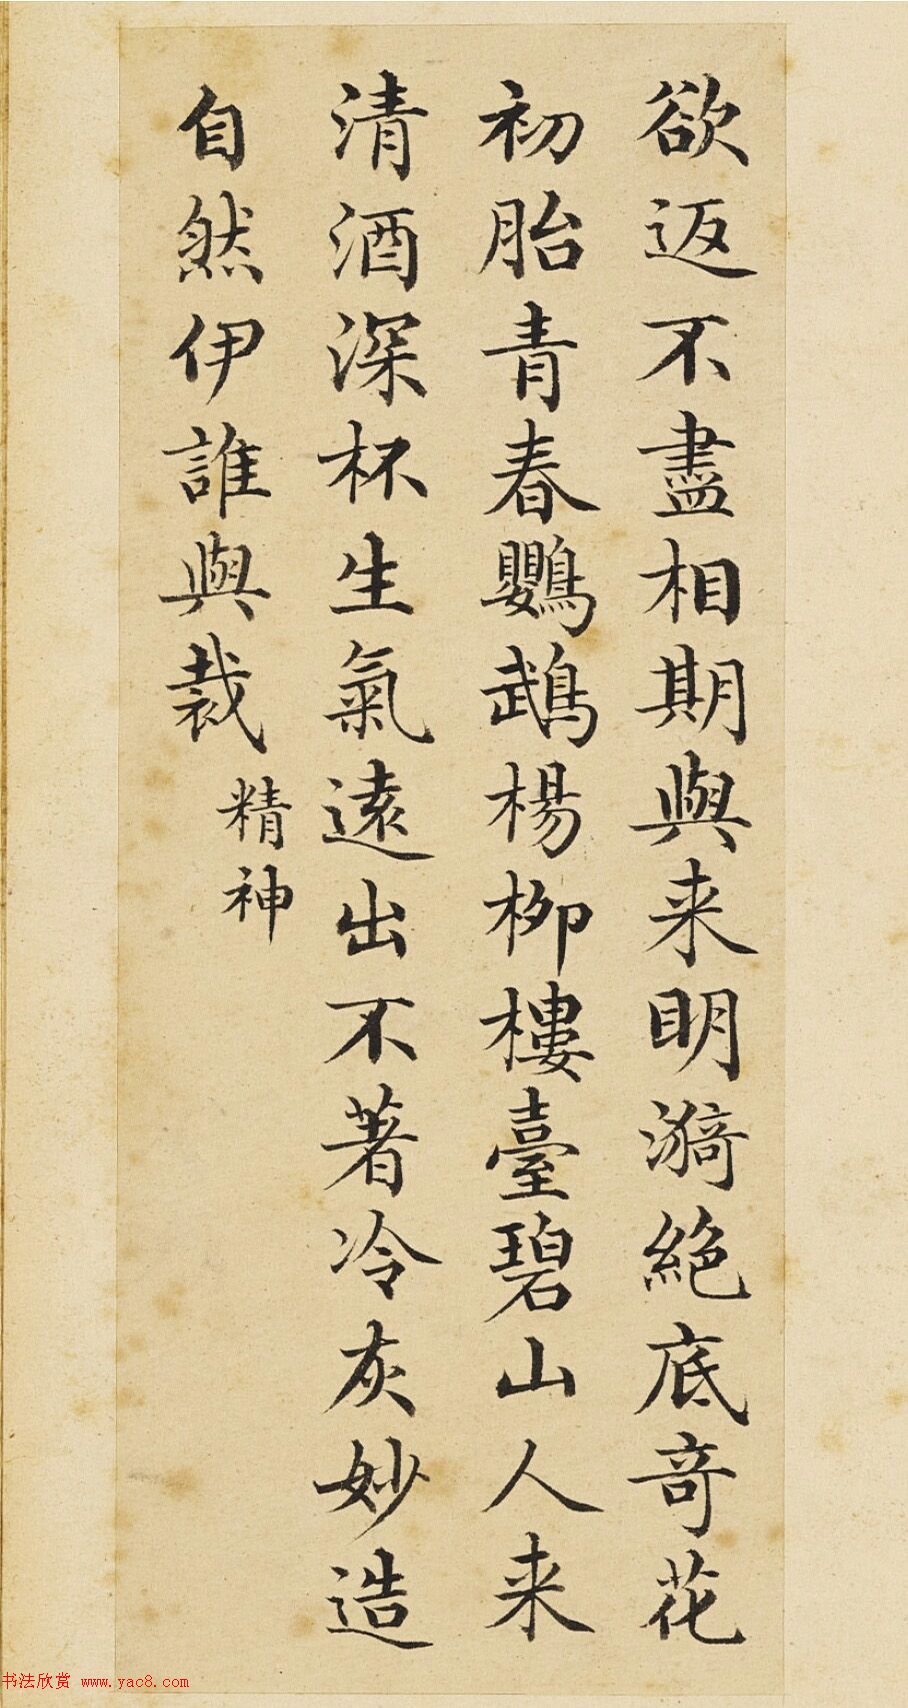 欲返不盡相期與来明漪絶底竒花
初胎青春鸚鵡楊柳樓臺碧山人来
清酒深杯生氣遠出不著冷灰妙造
自然伊誰與裁
精神
书法欣赏 www.yac8.com